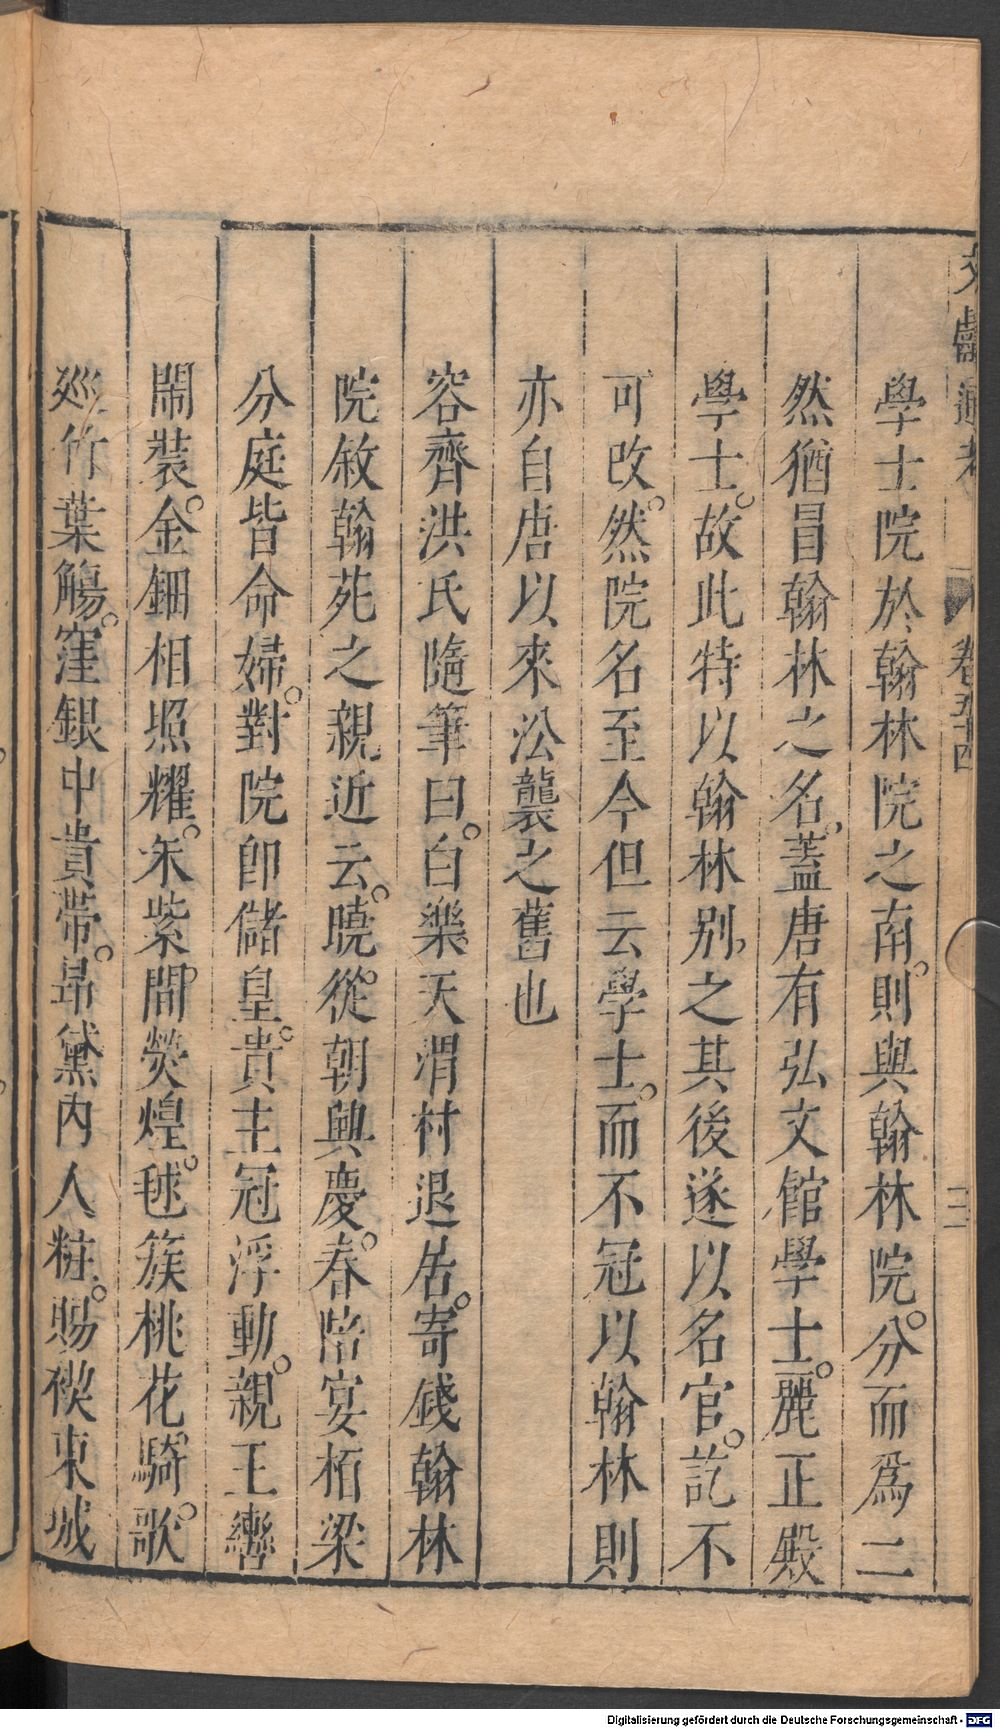 文獻通考 卷五十四 三
學士院於翰林院之南。則與翰林院。分而爲二
然猶冒翰林之名。蓋唐有弘文館學士。麗正殿
學士。故此特以翰林别之其後遂以名官。訖不
可改。然院名至今但云學士。而不冠以翰林則
亦自唐以來沿襲之舊也
容齊洪氏隨筆曰。白樂天渭村退居。寄錢翰林
院敘翰苑之親近云。曉從朝興慶。春陪宴栢梁
分庭皆命婦。對院卽儲皇。貴主冠浮動。親王轡
鬧裝。金鈿相照耀。朱紫間熒煌。毬簇桃花騎。歌
廵竹葉觴。窪銀中貴帶。昻黛內人粧。賜禊東城
Digitalisierung gefördert durch die Deutsche Forschungsgemeinschaft - DFG